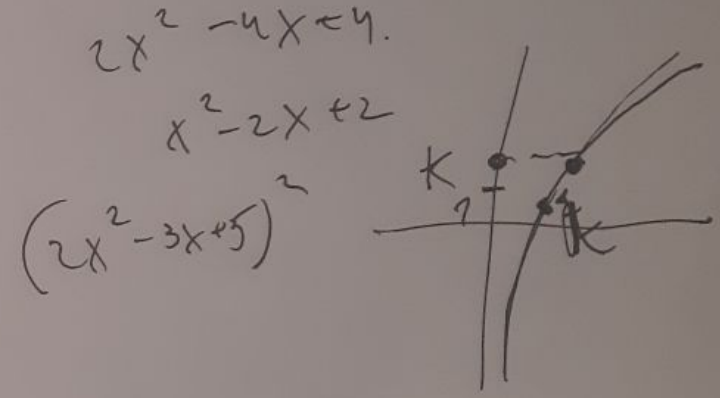 2x² -4x+4.
x²-2x+2
(2x²-3x+5)²
K
1
K